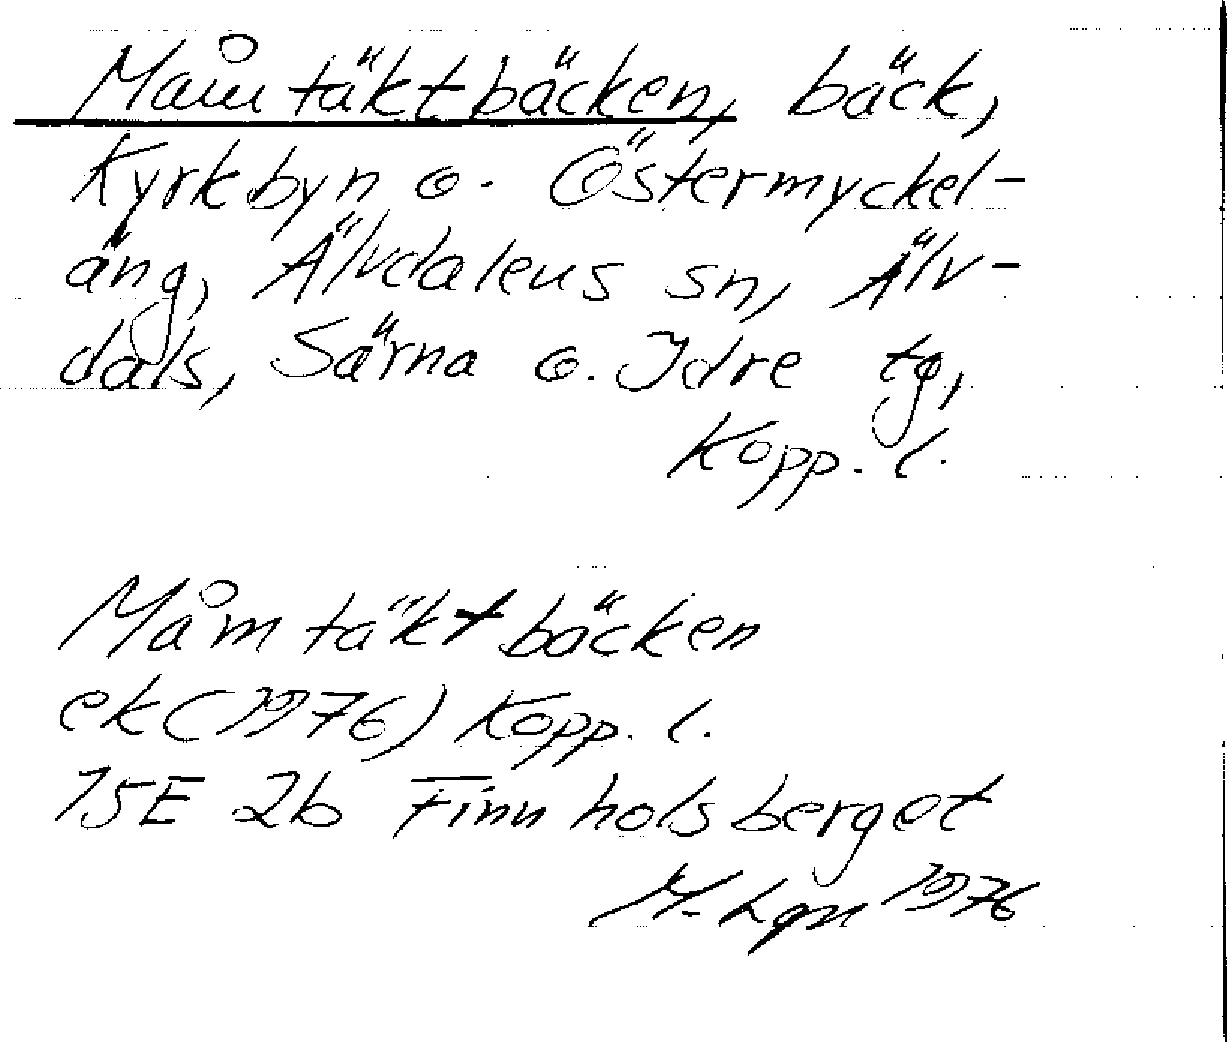 Måmtäktbäcken, bäck,
Kyrkbyn o. Östermyckel-
äng, Älvdalens sn, Älv-
dals, Särna o. Idre tg,
Kopp. l.
Måmtäktbäcken
ek (1976) Kopp. l.
15E 2b Finnholsberget
M. Lgn 1976